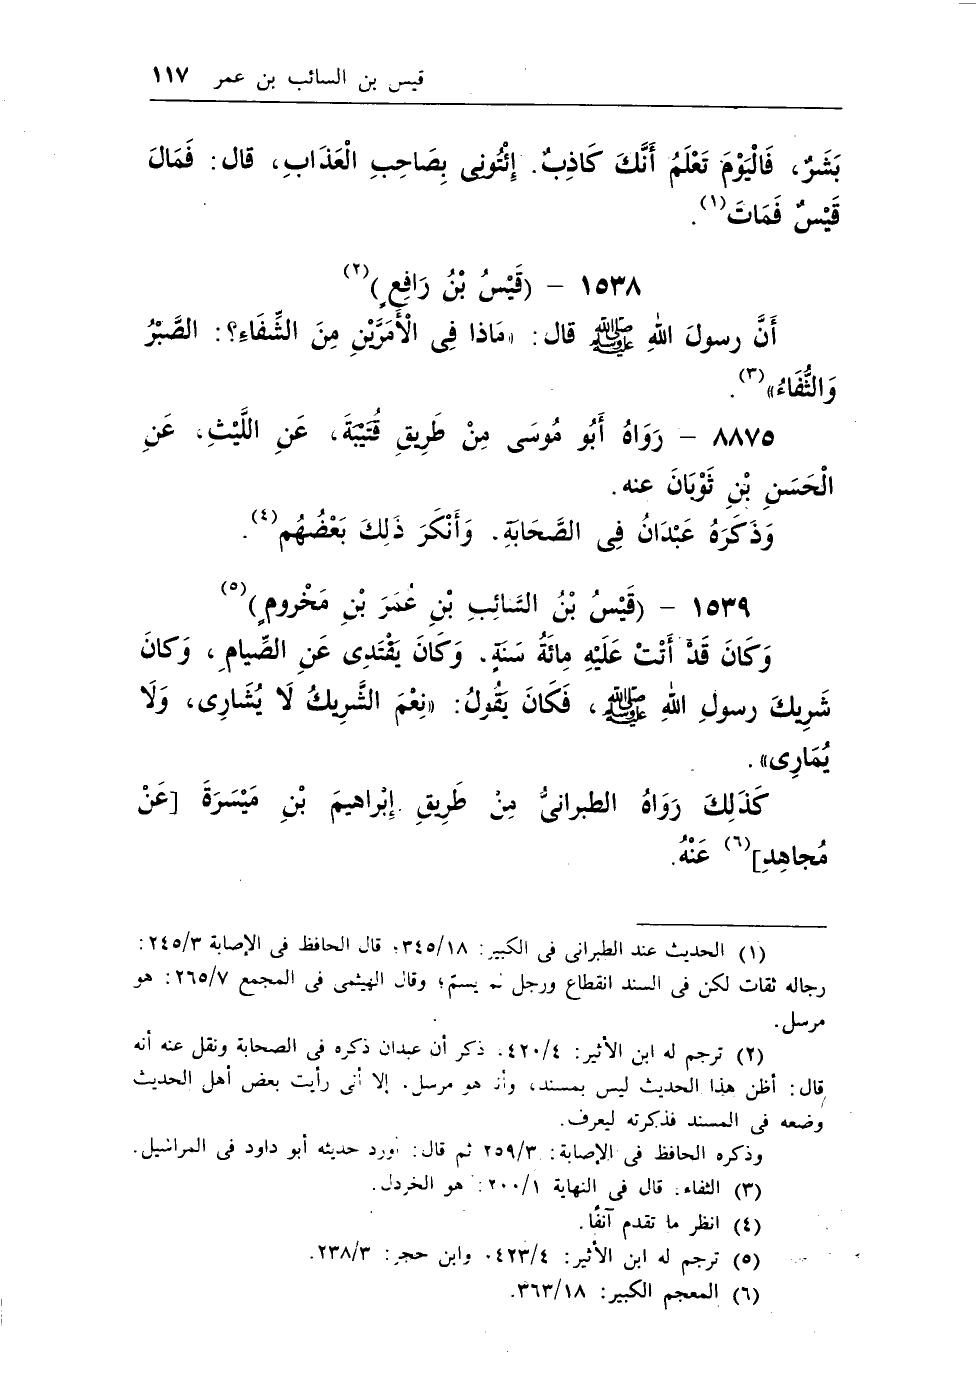 قيس بن السائب بن عمر ١١٧
بَشَرٌ، فَالْيَوْمَ تَعْلَمُ أَنَّكَ كَاذِبٌ. اِئْتُونِى بِصَاحِبِ الْعَذَابِ، قال: فَمَالَ
قَيْسٌ فَمَاتَ(١).
١٥٣٨ – (قَيْسُ بْنُ رَافِعٍ)(٢)
أَنَّ رسولَ اللهِ ﷺ قال: «مَاذا فِى الْأَمَرَّيْنِ مِنَ الشِّفَاءِ؟: الصَّبْرُ
وَالثُّفَاءُ»(٣).
٨٨٧٥ – رَوَاهُ أَبُو مُوسَى مِنْ طَرِيقِ قُتَيْبَةَ، عَنِ اللَّيْثِ، عَنِ
الْحَسَنِ بْنِ ثَوْبَانَ عنه.
وَذَكَرَهُ عَبْدَانُ فِى الصَّحَابَةِ. وَأَنْكَرَ ذَلِكَ بَعْضُهُم(٤).
١٥٣٩ – (قَيْسُ بْنُ السَّائِبِ بْنِ عُمَرَ بْنِ مَخْرومٍ)(٥)
وَكَانَ قَدْ أَتَتْ عَلَيْهِ مِائَةُ سَنَةٍ. وَكَانَ يَفْتَدِى عَنِ الصِّيامِ، وَكانَ
شَرِيكَ رسولِ اللهِ ﷺ، فَكَانَ يَقُولُ: «نِعْمَ الشَّرِيكُ لَا يُشَارِى، وَلَا
يُمَارِى».
كَذَلِكَ رَوَاهُ الطبرانىُّ مِنْ طَرِيقِ إِبْراهيمَ بْنِ مَيْسَرَةَ [عَنْ
مُجاهِدٍ](٦) عَنْهُ.
(١) الحديث عند الطبرانى فى الكبير: ٣٤٥/١٨، قال الحافظ فى الإصابة ٢٤٥/٣:
رجاله ثقات لكن فى السند انقطاع ورجل لم يسمّ؛ وقال الهيثمى فى المجمع ٢٦٥/٧: هو
مرسل.
(٢) ترجم له ابن الأثير: ٤٢٠/٤. ذكر أن عبدان ذكره فى الصحابة ونقل عنه أنه
قال: أظن هذا الحديث ليس بمسند، وأنه هو مرسل. إلا أنى رأيت بعض أهل الحديث
وضعه فى المسند فذكرته ليعرف.
وذكره الحافظ فى الإصابة: ٢٥٩/٣ ثم قال: أورد حديثه أبو داود فى المراسيل.
(٣) الثفاء: قال فى النهاية ٢٠٠/١: هو الخردل.
(٤) انظر ما تقدم آنفًا.
(٥) ترجم له ابن الأثير: ٤٢٣/٤، وابن حجر: ٢٣٨/٣.
(٦) المعجم الكبير: ٣٦٣/١٨.